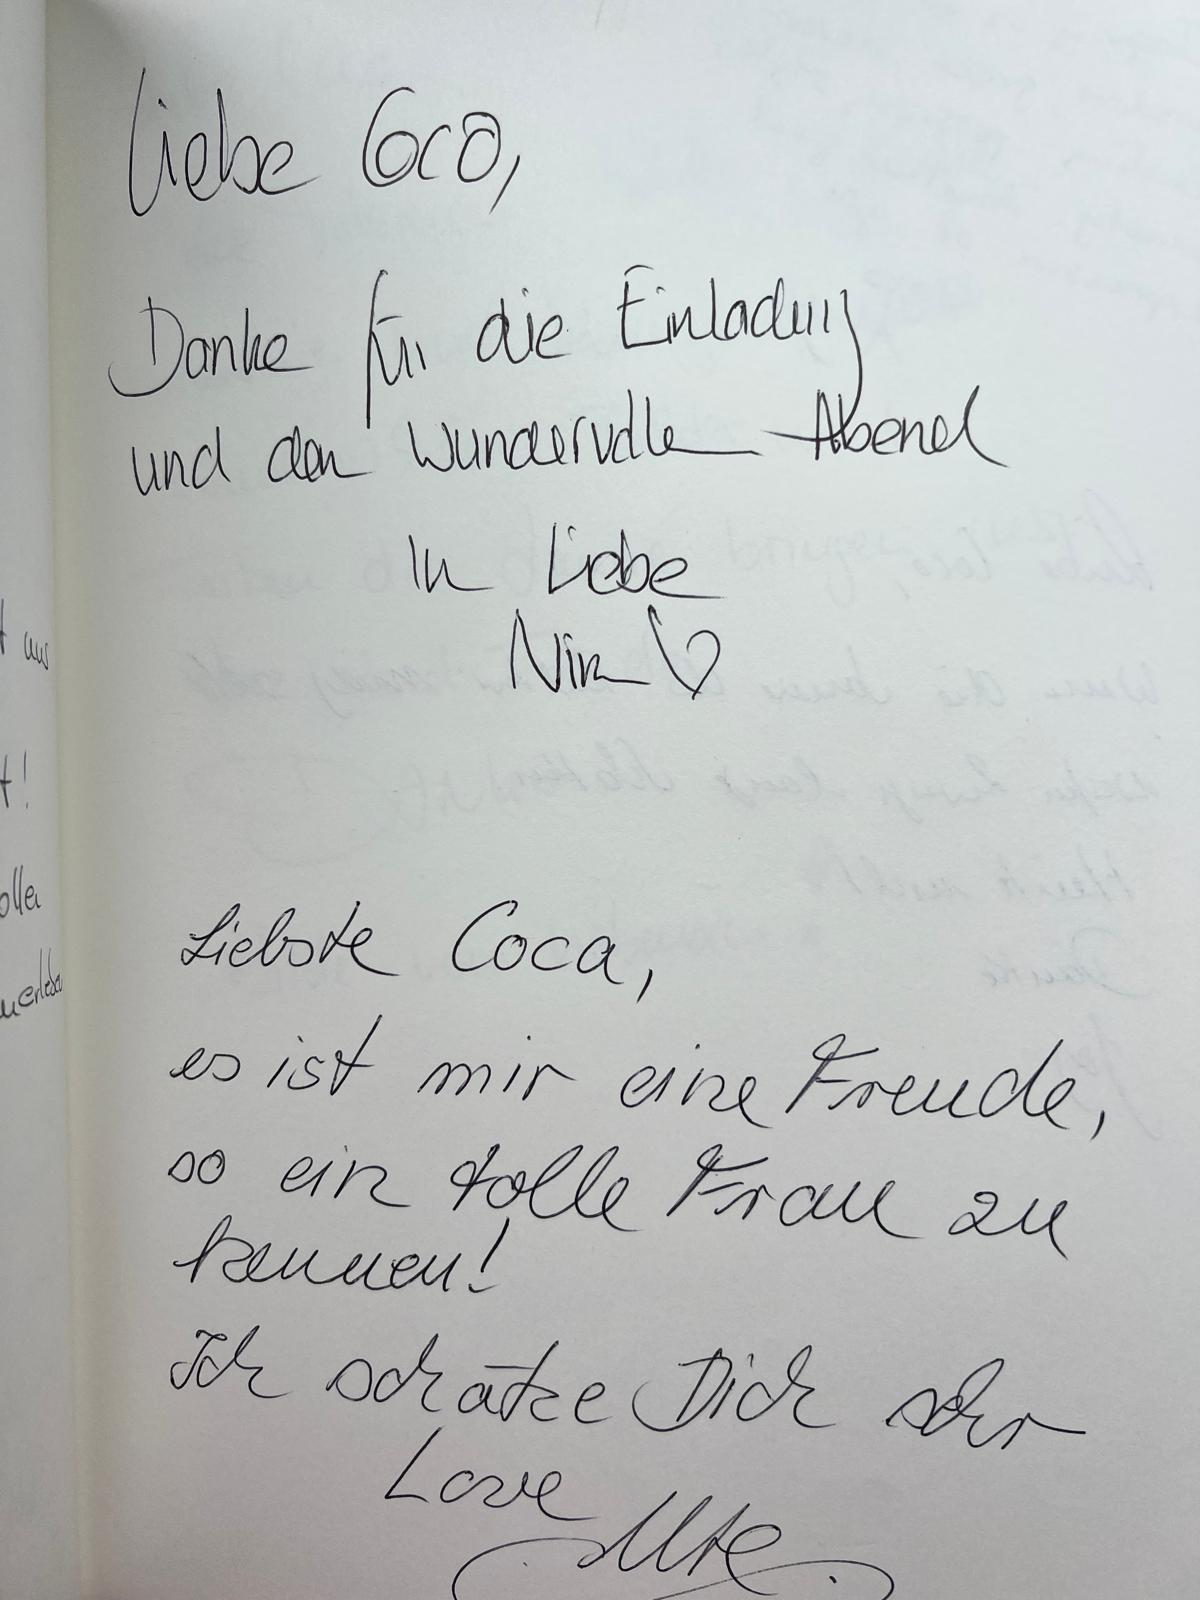 Liebe Coco,
Danke für die Einladung
und den wundervollen Abend
In Liebe
Nina ♡
Liebste Coca,
es ist mir eine Freude,
so ein tolle Frau zu
kennen!
Ich schätze Dich sehr
Love
Ute